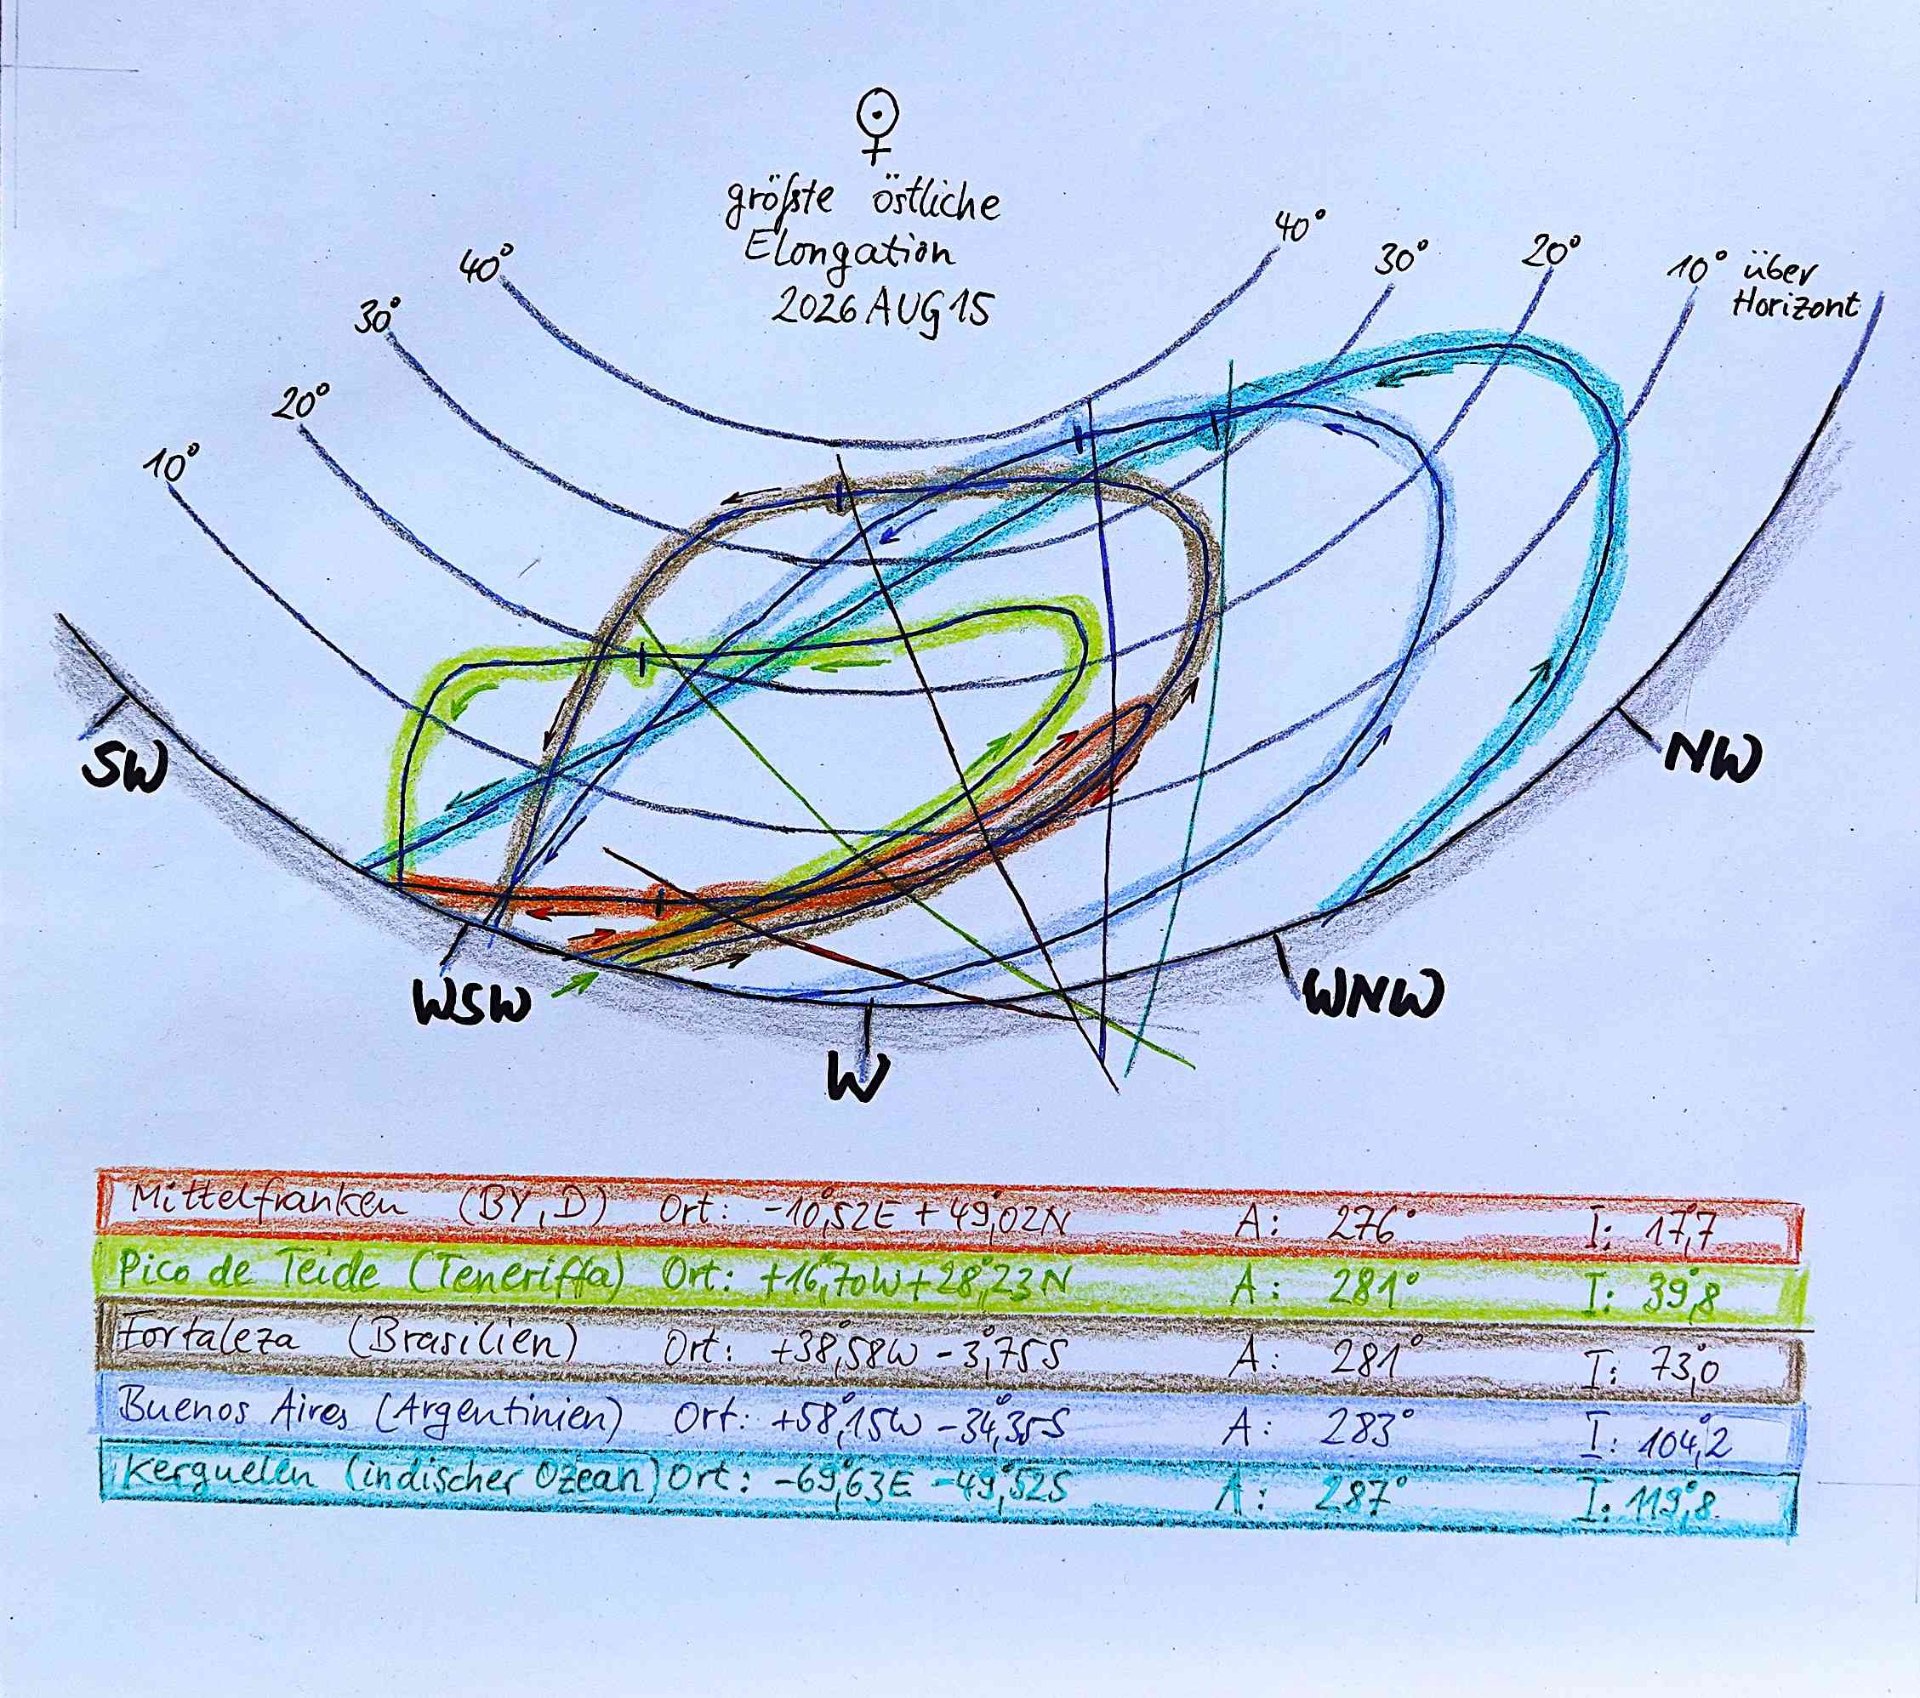 größte östliche
Elongation
2026 AUG 15
40° 40°
30° 30°
20° 20°
10° 10° über
Horizont
SW NW
WSW WNW
W
Mittelfranken (BY, D) Ort: -10°,52E +49°,02N A: 276° I: 17°,7
Pico de Teide (Teneriffa) Ort: +16°,70W +28°,23N A: 281° I: 39°,8
Fortaleza (Brasilien) Ort: +38°,58W -3°,75S A: 281° I: 73°,0
Buenos Aires (Argentinien) Ort: +58°,15W -34°,35S A: 283° I: 104°,2
Kerguelen (indischer Ozean) Ort: -69°,63E -49°,52S A: 287° I: 119°,8